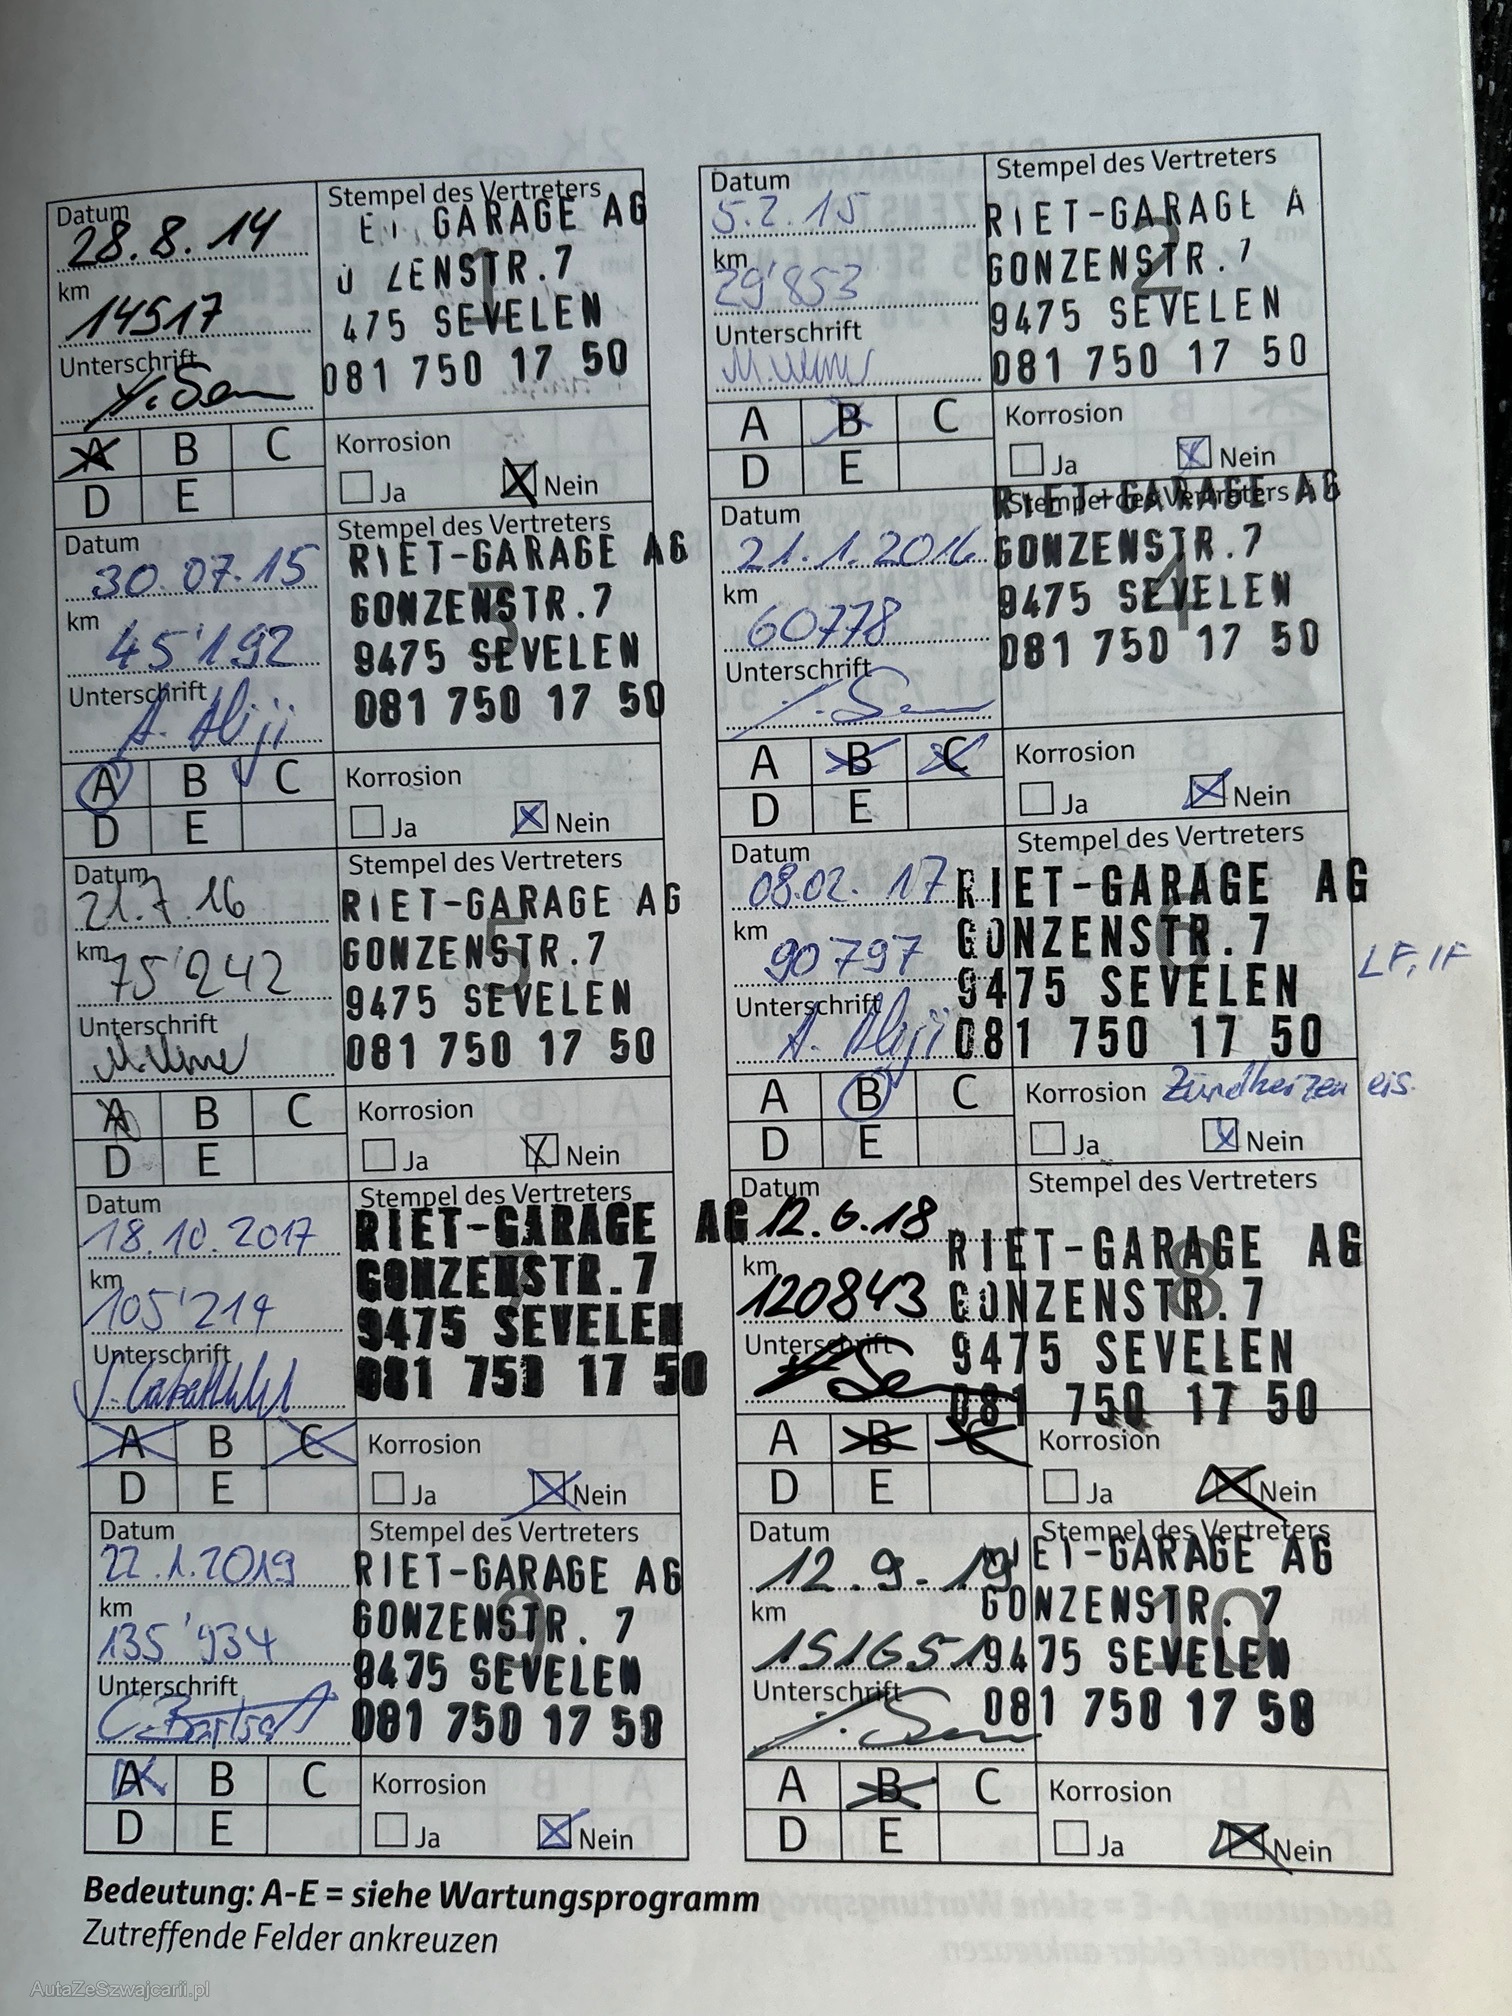 Datum
28.8.14
km
14517
Unterschrift
Stempel des Vertreters
GARAGE AG
ENSTR.7
475 SEVELEN
081 750 17 50
1
A B C
D E
Korrosion
Ja Nein
Datum
5.2.15
km
29'853
Unterschrift
Stempel des Vertreters
RIET-GARAGE A
GONZENSTR.7
9475 SEVELEN
081 750 17 50
2
A B C
D E
Korrosion
Ja Nein
Datum
30.07.15
km
45'192
Unterschrift
A. Aliji
Stempel des Vertreters
RIET-GARAGE AG
GONZENSTR.7
9475 SEVELEN
081 750 17 50
3
A B C
D E
Korrosion
Ja Nein
Datum
21.1.2016
km
60778
Unterschrift
Stempel des Vertreters
RIET-GARAGE AG
GONZENSTR.7
9475 SEVELEN
081 750 17 50
4
A B C
D E
Korrosion
Ja Nein
Datum
21.7.16
km
75'242
Unterschrift
Stempel des Vertreters
RIET-GARAGE AG
GONZENSTR.7
9475 SEVELEN
081 750 17 50
5
A B C
D E
Korrosion
Ja Nein
Datum
08.02.17
km
90797
Unterschrift
A. Aliji
Stempel des Vertreters
RIET-GARAGE AG
GONZENSTR.7
9475 SEVELEN
081 750 17 50
6
LF, IF
A B C
D E
Korrosion
Ja Nein
Datum
18.10.2017
km
105'214
Unterschrift
Stempel des Vertreters
RIET-GARAGE AG
GONZENSTR.7
9475 SEVELEN
081 750 17 50
A B C
D E
Korrosion
Ja Nein
Datum
12.6.18
km
120843
Unterschrift
Stempel des Vertreters
RIET-GARAGE AG
GONZENSTR.7
9475 SEVELEN
081 750 17 50
8
A B C
D E
Korrosion
Ja Nein
Datum
22.1.2019
km
135'934
Unterschrift
Stempel des Vertreters
RIET-GARAGE AG
GONZENSTR.7
9475 SEVELEN
081 750 17 50
9
A B C
D E
Korrosion
Ja Nein
Datum
12.9.19
km
151651
Unterschrift
Stempel des Vertreters
IET-GARAGE AG
GONZENSTR.7
9475 SEVELEN
081 750 17 50
10
A B C
D E
Korrosion
Ja Nein
Bedeutung: A-E = siehe Wartungsprogramm
Zutreffende Felder ankreuzen
AutaZeSzwajcarii.pl